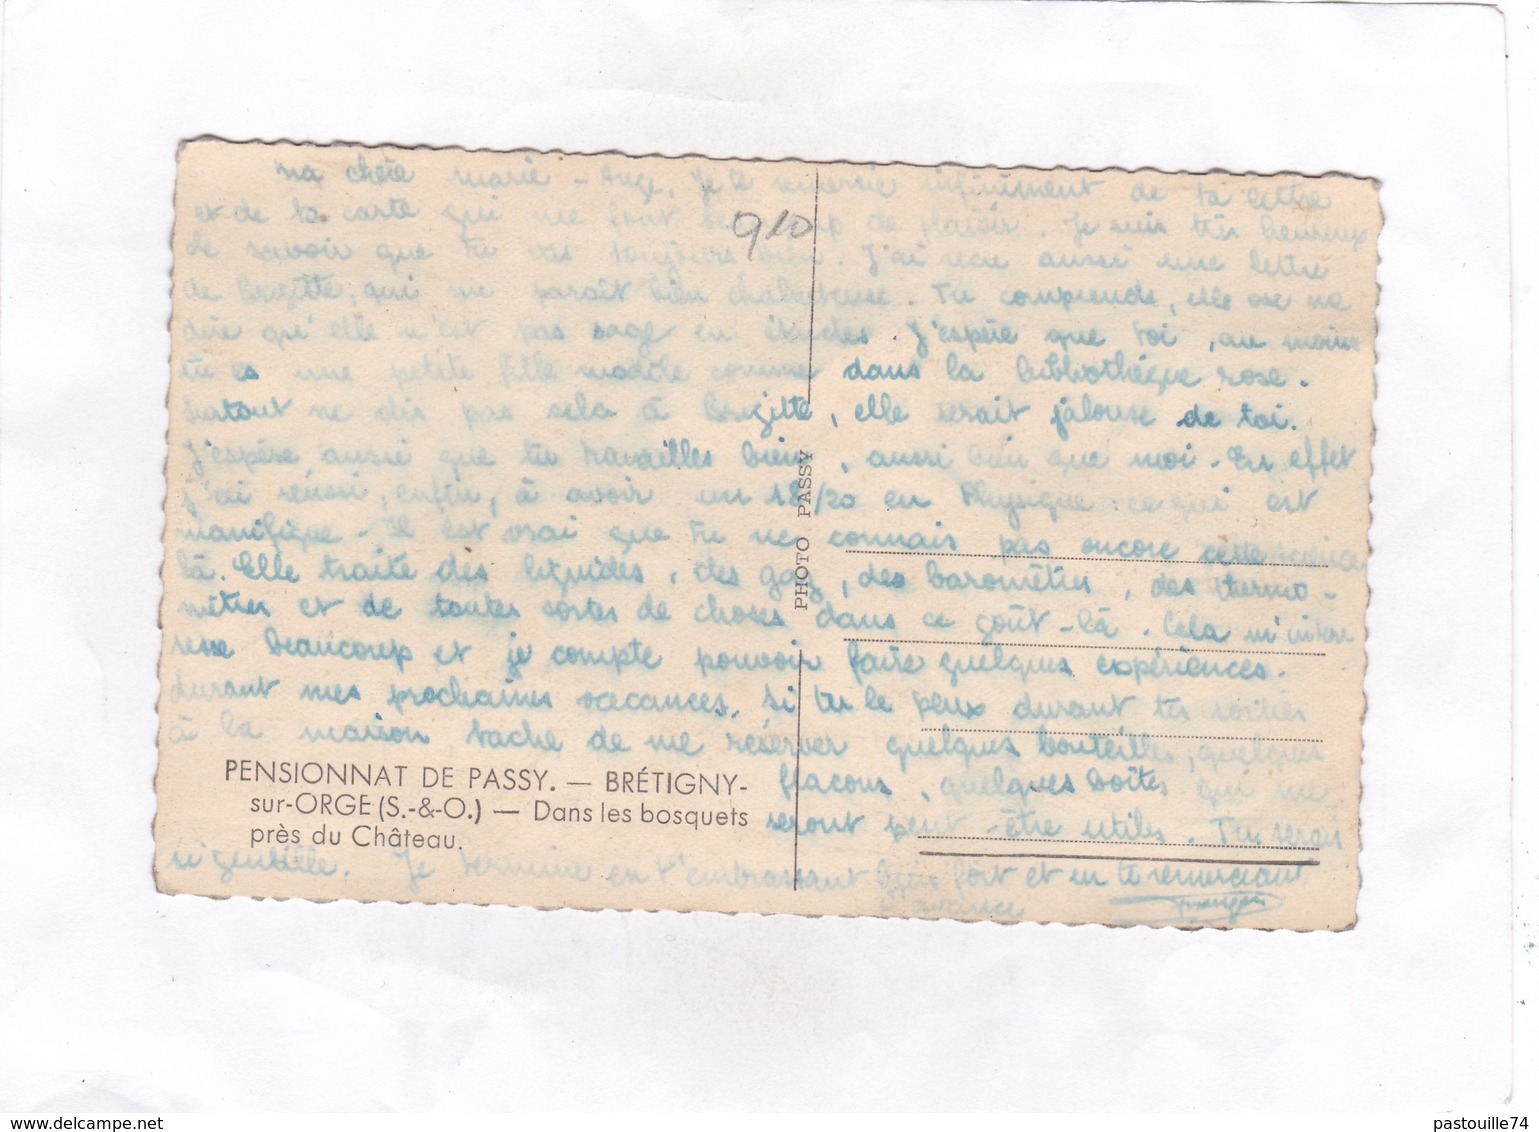 Ma chère Marie-Ange, Je te remercie infiniment de ta lettre
et de ta carte qui me font beaucoup de plaisir. Je suis très heureux
de savoir que tu vas toujours bien. J'ai reçu aussi une lettre
de Brigitte, qui me paraît bien chahuteuse. Tu comprends, elle ose me
dire qu'elle n'est pas sage en études. J'espère que toi, au moins
tu es une petite fille modèle comme dans la bibliothèque rose.
Surtout ne dis pas cela à Brigitte, elle serait jalouse de toi.
J'espère aussi que tu travailles bien, aussi bien que moi. En effet
j'ai réussi, enfin, à avoir un 18/20 en Physique ce qui est
manifique. Il est vrai que tu ne connais pas encore cette science
là. Elle traite des liquides, des gaz, des baromètres, des thermo-
mètres et de toutes sortes de choses dans ce goût-là. Cela m'inté
resse beaucoup et je compte pouvoir faire quelques expériences.
durant mes prochaines vacances. Si tu le peux durant tes sorties
à la maison tache de me réserver quelques bouteilles, quelques
flacons, quelques boîtes qui me
seront peut-être utiles. Tu serais
si gentille. Je termine en t'embrassant bien fort et en te remerciant
d'avance
François
910
PHOTO PASSY
PENSIONNAT DE PASSY. — BRÉTIGNY-
sur-ORGE (S.-&-O.) — Dans les bosquets
près du Château.
pastouille74